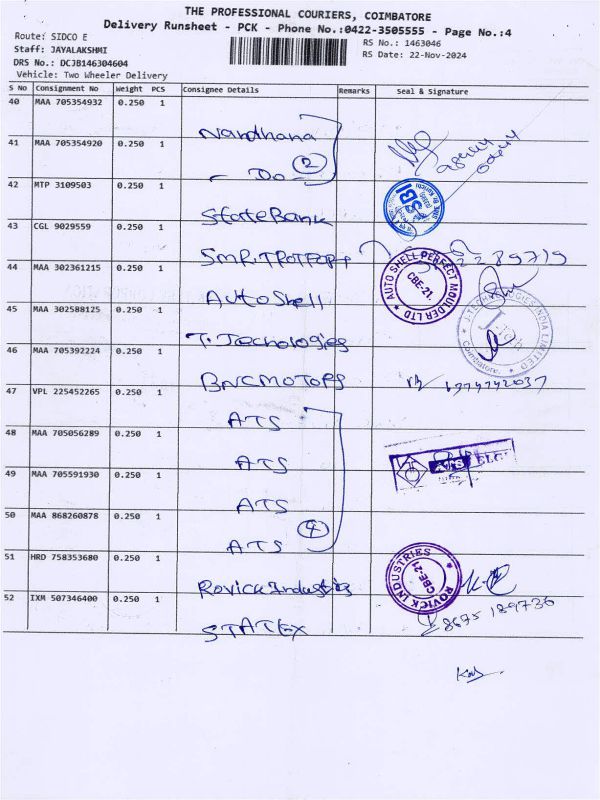 THE PROFESSIONAL COURIERS, COIMBATORE
Delivery Runsheet - PCK - Phone No.:0422-3505555 - Page No.:4
Route: SIDCO E
Staff: JAYALAKSHMI
DRS No.: DCJB146304604
Vehicle: Two Wheeler Delivery
RS No.: 1463046
RS Date: 22-Nov-2024
S No Consignment No Weight PCS Consignee Details Remarks Seal & Signature
40 MAA 705354932 0.250 1
Nandhana
41 MAA 705354920 0.250 1
- Do - 2
42 MTP 3109503 0.250 1
State Bank
SBI
43 CGL 9029559 0.250 1
44 MAA 302361215 0.250 1
Auto Shell
AUTO SHELL PERFECT MOULDER LTD CBE-21.
45 MAA 302588125 0.250 1
T. Technologies
TECHNOLOGIES INDIA LIMITED Coimbatore.
46 MAA 705392224 0.250 1
BNC MOTORS
47 VPL 225452265 0.250 1
ATS
48 MAA 705056289 0.250 1
ATS
ATS ELGI
49 MAA 705591930 0.250 1
ATS
50 MAA 868260878 0.250 1
ATS 4
51 HRD 758353680 0.250 1
Rovick Industries
ROVICK INDUSTRIES CBE-21
52 IXM 507346400 0.250 1
STATEX
8675 189736